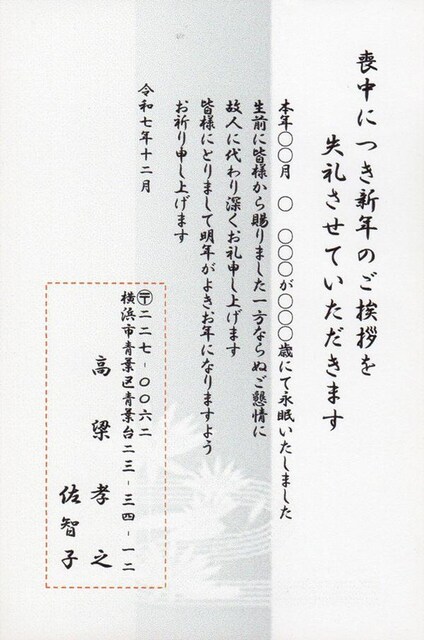 喪中につき新年のご挨拶を
失礼させていただきます
本年〇〇月 〇 〇〇〇が〇〇〇歳にて永眠いたしました
生前に皆様から賜りました一方ならぬご懇情に
故人に代わり深くお礼申し上げます
皆様にとりまして明年がよきお年になりますよう
お祈り申し上げます
令和七年十二月
〒二二七-〇〇六二
横浜市青葉区青葉台二三-三四-一二
高梁 孝之
佐智子